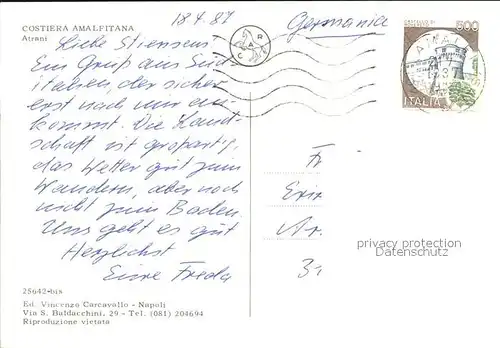 COSTIERA AMALFITANA
Atrani
18.4.87
Germania
500
ITALIA
Liebe Stiensens!
Ein Gruß aus Süd
italien, der sicher
erst nach mir an-
kommt. Die Land-
schaft ist großartig,
das Wetter gut zum
Wandern, aber noch
nicht zum Baden.
Uns geht es gut
Herzlichst
Eure Freda
Fr
31
privacy protection
Datenschutz
25642-bis
Ed. Vincenzo Carcavallo - Napoli
Via S. Baldacchini, 29 - Tel. (081) 204694
Riproduzione vietata